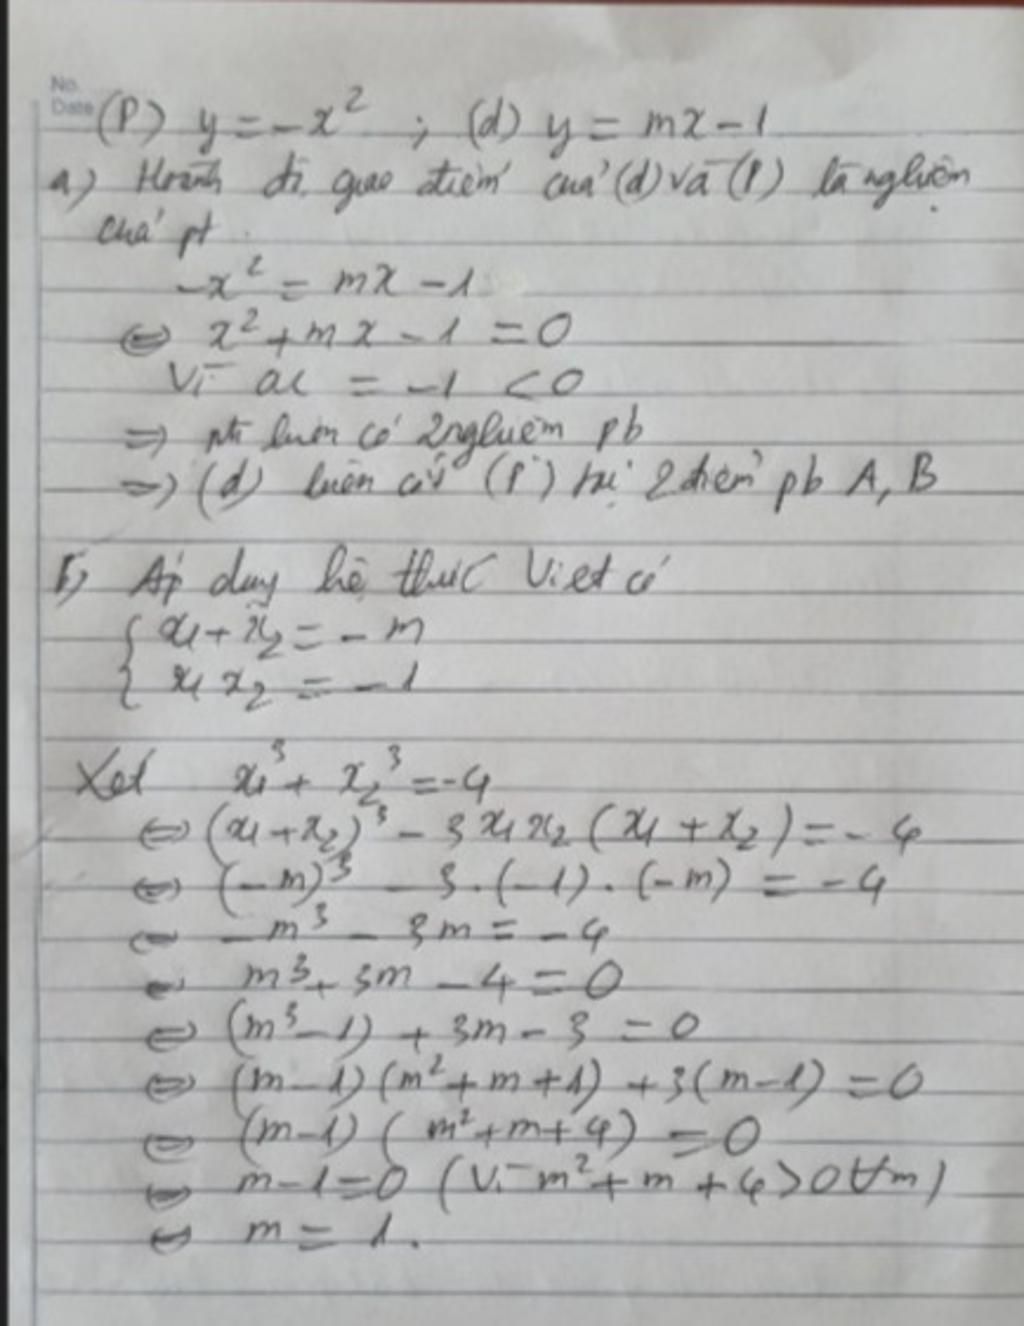 No.
Date
(P) y = -x² ; (d) y = mx - 1
a) Hoành độ giao điểm của (d) và (P) là nghiệm
của pt
-x² = mx - 1
⇔ x² + mx - 1 = 0
Vì ac = -1 < 0
⇒ pt luôn có 2 nghiệm pb
⇒ (d) luôn cắt (P) tại 2 điểm pb A, B
b) Áp dụng hệ thức Viet có
{ x₁ + x₂ = -m
x₁ x₂ = -1
Xét x₁³ + x₂³ = -4
⇔ (x₁ + x₂)³ - 3 x₁ x₂ (x₁ + x₂) = -4
⇔ (-m)³ - 3 . (-1) . (-m) = -4
⇔ -m³ - 3m = -4
⇔ m³ + 3m - 4 = 0
⇔ (m³ - 1) + 3m - 3 = 0
⇔ (m - 1) (m² + m + 1) + 3(m - 1) = 0
⇔ (m - 1) ( m² + m + 4) = 0
⇔ m - 1 = 0 (Vì m² + m + 4 > 0 ∀m)
⇔ m = 1.